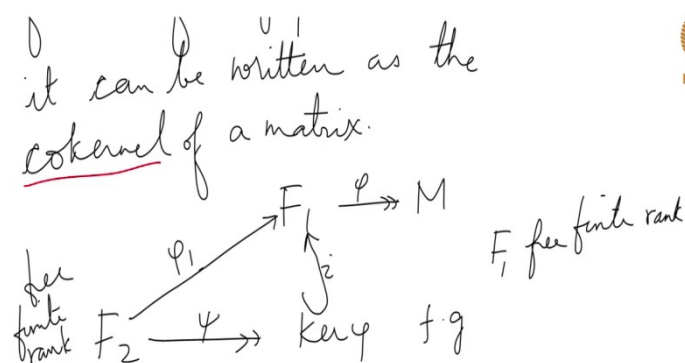 it can be written as the
cokernel of a matrix.
F₁ φ M
F₁ free finite rank
φ₁ i
free
finite
rank F₂ ψ ker φ f.g